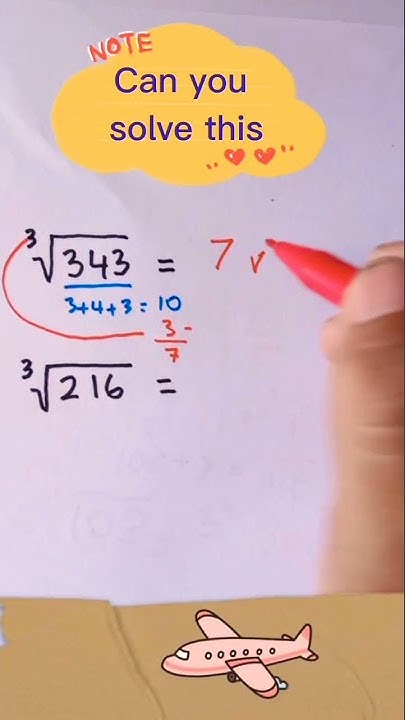 NOTE
Can you
solve this
∛343 = 7 ✓
3+4+3 = 10
3 -
7
∛216 =